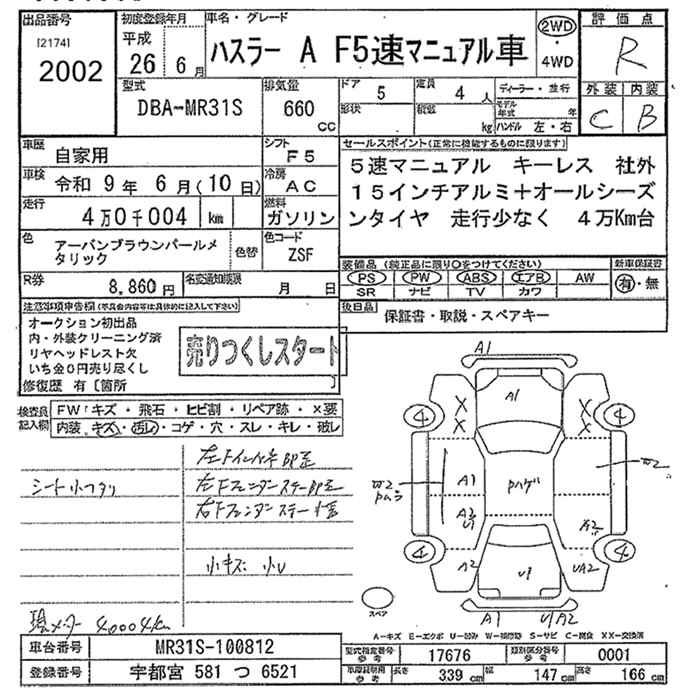 出品番号
[2174]
2002
初度登録年月
平成
26 6月
車名・グレード
ハスラー A F5速マニュアル車
2WD
・
4WD
評価点
R
外装 内装
C B
型式
DBA-MR31S
排気量
660
CC
ドア
5
定員
4 人
形状
積載
kg
ディーラー・並行
モデル年式 年
ハンドル 左・右
車歴
自家用
シフト
F5
車検
令和 9年 6月(10日)
冷房
AC
走行
4万0千004 km
燃料
ガソリン
色
アーバンブラウンパールメタリック
色替
色コード
ZSF
R券
8,860円
名変通知期限
月 日
セールスポイント(正常に機能するものに限ります)
5速マニュアル キーレス 社外
15インチアルミ+オールシーズ
ンタイヤ 走行少なく 4万Km台
装備品(純正品に限り○をつけてください)
新車保証書
PS PW ABS エアB AW
有・無
SR ナビ TV カワ
後日品
保証書・取説・スペアキー
注意事項申告欄
オークション初出品
内・外装クリーニング済
リヤヘッドレスト欠
いち金0円売り尽くし
修復歴 有〔箇所 〕
売りつくしスタート
検査員
記入欄
FW/キズ・飛石・ヒビ割・リペア跡・×要
内装 キズ・汚レ・コゲ・穴・スレ・キレ・破レ
小キズ 小U
40004km
A1
A1
X
X
X
X
4
4
A1
A2
U1
A2
A2
UA2
U1
4
4
A1
U1A2
スペア
A-キズ E-エクボ U-凹み W-補修跡 S-サビ C-腐食 XX-交換済
車台番号
MR31S-100812
登録番号
宇都宮 581 つ 6521
型式指定番号
参考
17676
類別区分番号
参考
0001
長さ
339 cm
幅
147 cm
高さ
166 cm